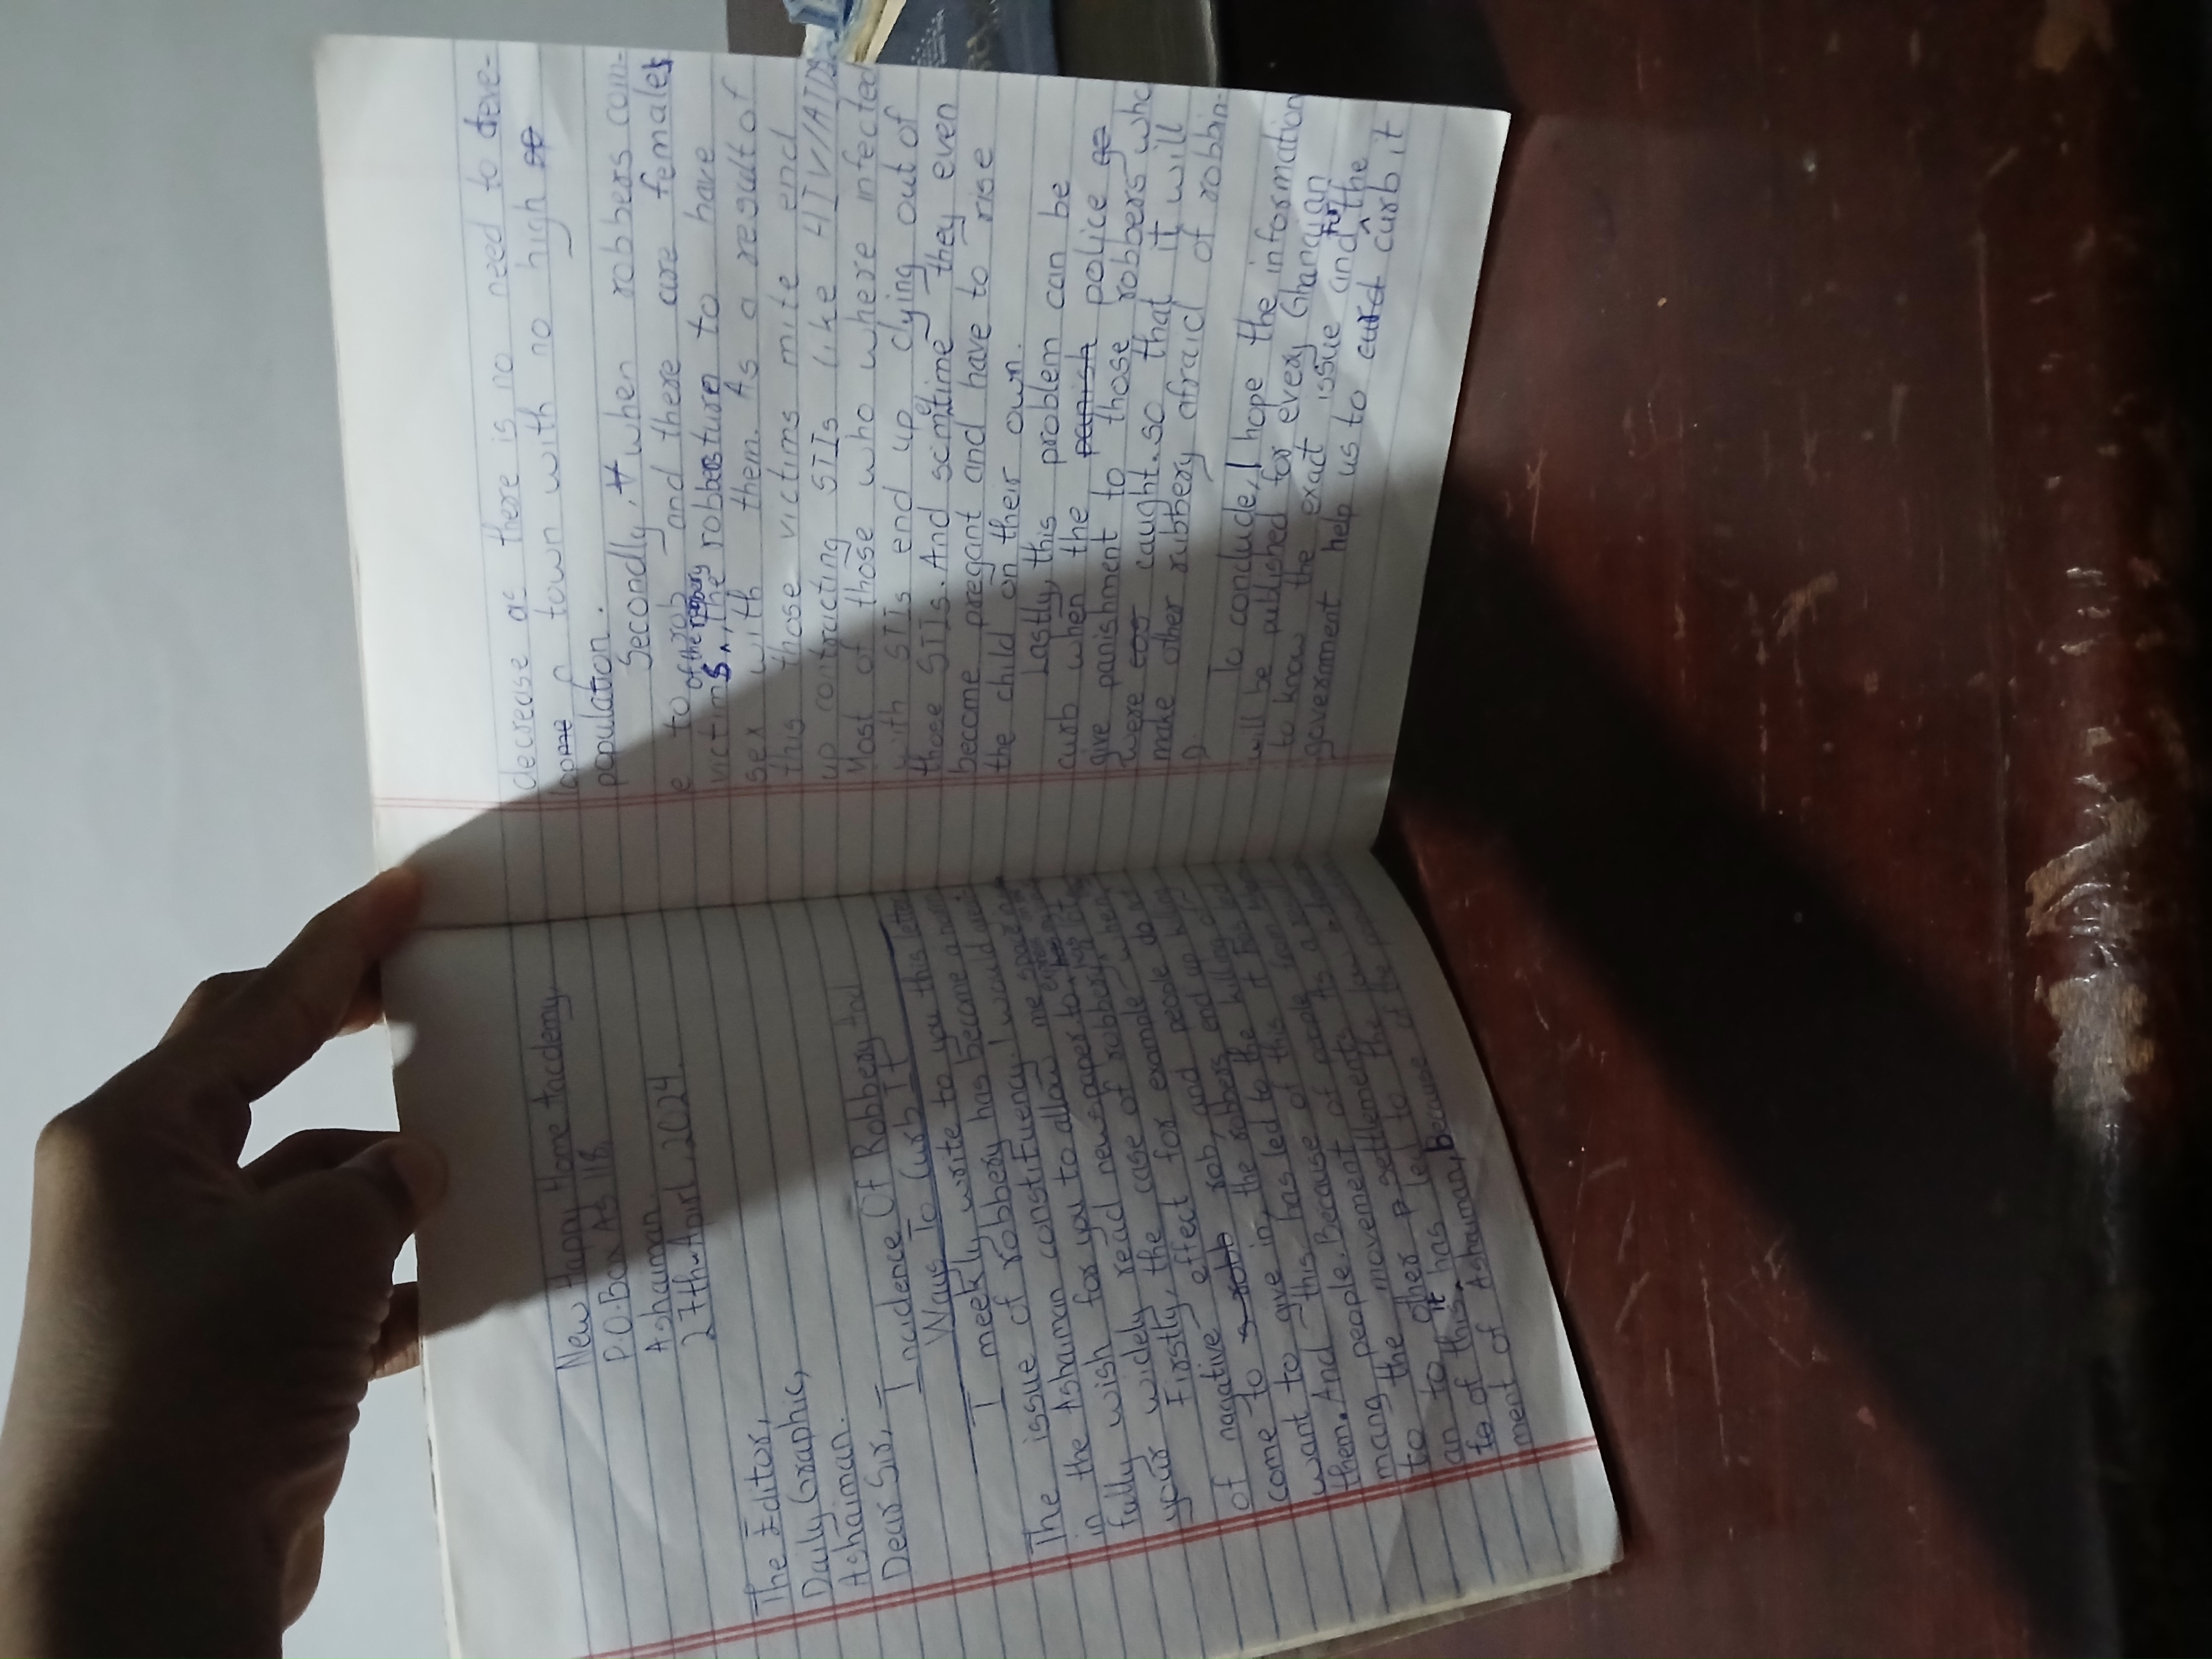 New Happy Home Academy,
P.O.Box As 118,
Ashaiman.
27th April, 2024.
The Editor,
Daily Graphic,
Ashaiman.
Dear Sir,
Incidence Of Robbery And
Ways To Curb It
I meekly write to you this letter
The issue of robbery has become a
in the Ashaiman constituency. I would
fully wish for you to allow me space
your widely read newspaper to
Firstly, the case of robbery
of nagative effect for example when
come to rob, and people do not
want to give in, the robbers end up killing
them. And this has led to the killing of
many people. Because of this
to the movement of people
an to other settlements. As a
to of this it has led to the
ment of Ashaiman, Because of the
decrease as there is no need to deve-
lop a town with no high
population.
Secondly, when robbers com-
e to rob and there are females
victims of the robbery, the robbers turn to have
sex with them. As a result of
this those victims mite end
up contracting STIs like HIV/AIDS
Most of those who where infected
with STIs end up dying out of
those STIs. And sometime they even
become pregant and have to rise
the child on their own.
Lastly, this problem can be
curb when the panish police
give panishment to those robbers who
were caught. so that it will
make other rubbery afraid of robbin-
g.
To conclude, I hope the information
will be published for every Ghanaian
to know the exact issue and for the
goverment help us to curd curb it